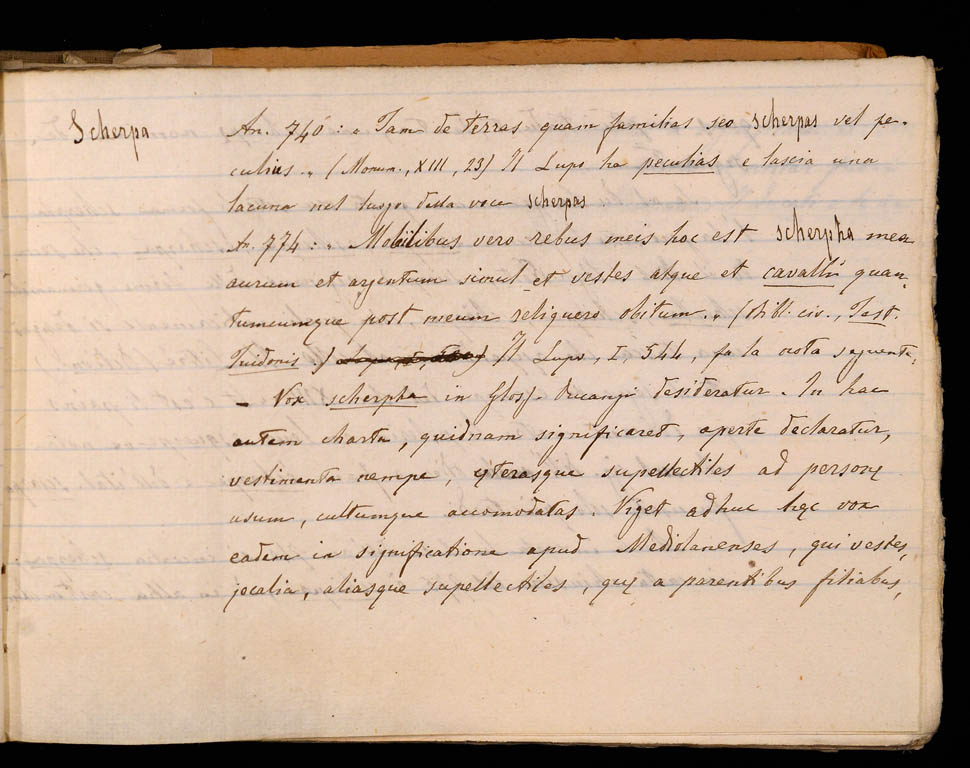 Scherpa
An. 740 : „ Tam de terras quam familias seo scherpas vel pe-
culias. „ (Monum., XIII, 23) Il Lupo ha peculias e lascia una
lacuna nel luogo della voce scherpas.
An. 774 : „ Mobilibus vero rebus meis hoc est scherpha mea
aurum et argentum simul et vestes atque et cavalli quan-
tumcumque post meum reliquero obitum. „ (Bibl. civ., Test.
Tuidonis) Il Lupo, I, 544, fa la nota seguente:
– Vox scherpha in Gloss. Ducangi desideratur. In hac
autem charta, quidnam significaret, aperte declaratur,
vestimenta nempe, ceterasque supellectiles ad personę
usum, cultumque accomodatas. Viget adhuc hęc vox
eadem in significatione apud Mediolanenses, qui vestes,
jocalia, aliasque supellectiles, quę a parentibus filiabus,